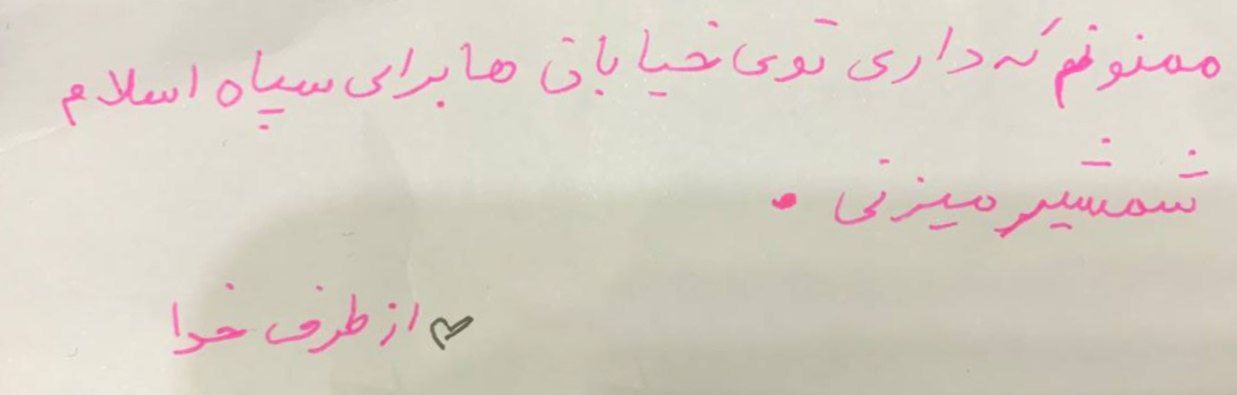 ممنونم که داری توی خیابانی ها برای سپاه اسلام
شمشیر میزنی .
از طرف خدا